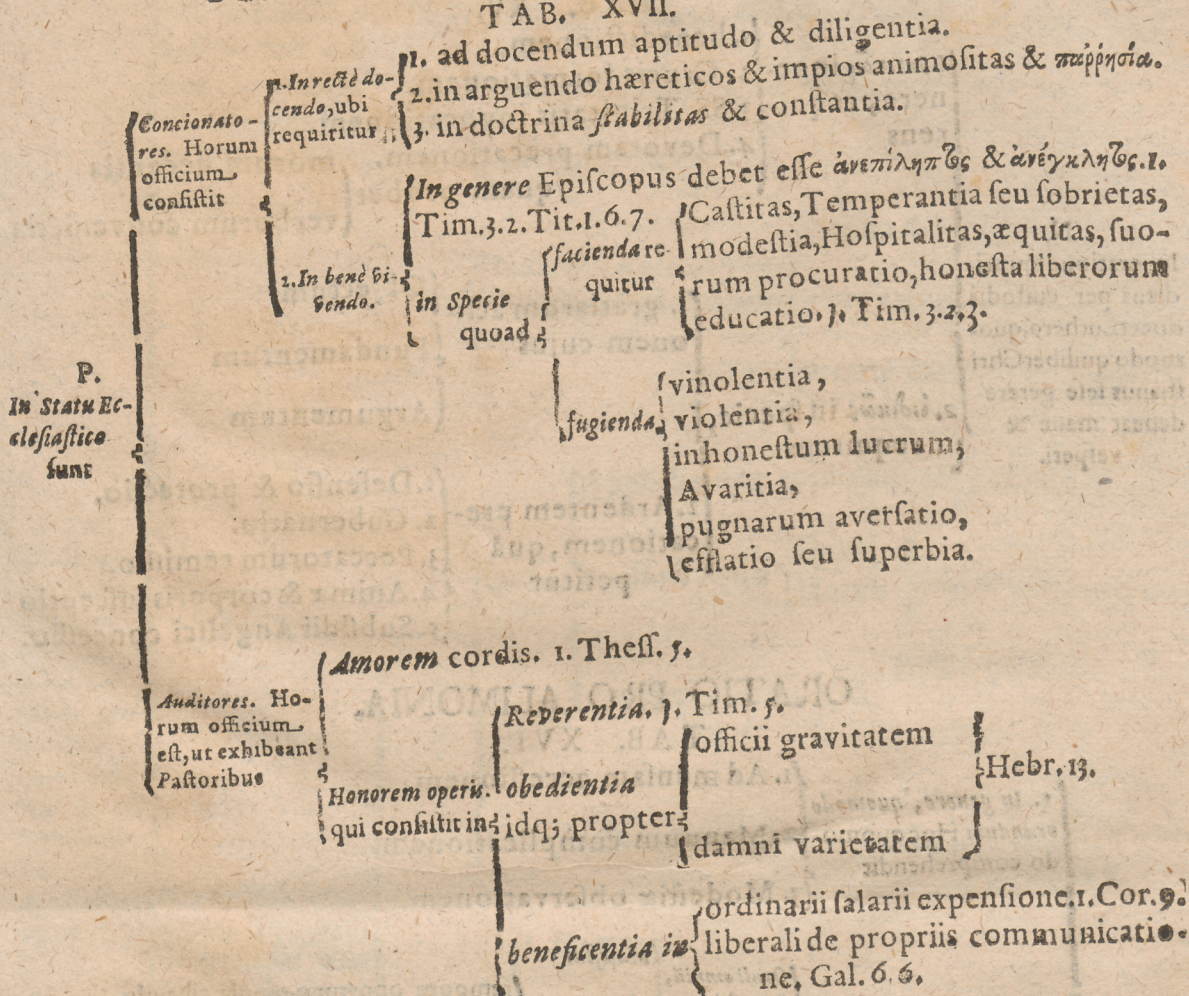 TAB. XVII.
P.
In Statu Ec-
clesiastico
sunt
Concionato-
res. Horum
officium
consistit
1. In rectè do-
cendo, ubi
requiritur
1. ad docendum aptitudo & diligentia.
2. in arguendo hæreticos & impios animositas & παῤῥησία.
3. in doctrina stabilitas & constantia.
2. In benè vi-
vendo.
In genere Episcopus debet esse ἀνεπίληπτος & ἀνέγκλητος. 1.
Tim. 3. 2. Tit. 1. 6. 7.
in Specie
quoad
facienda re-
quitur
Castitas, Temperantia seu sobrietas,
modestia, Hospitalitas, æquitas, suo-
rum procuratio, honesta liberorum
educatio. 1. Tim. 3. 2. 3.
fugienda
vinolentia,
violentia,
inhonestum lucrum,
Avaritia,
pugnarum aversatio,
efflatio seu superbia.
Auditores. Ho-
rum officium
est, ut exhibeant
Pastoribus
Amorem cordis. 1. Thess. 5.
Honorem operis.
qui consistit in
Reverentia. 1. Tim. 5.
obedientia
idq; propter
officii gravitatem
damni varietatem
Hebr. 13.
beneficentia in
ordinarii salarii expensione. 1. Cor. 9.
liberali de propriis communicatio-
ne. Gal. 6. 6.